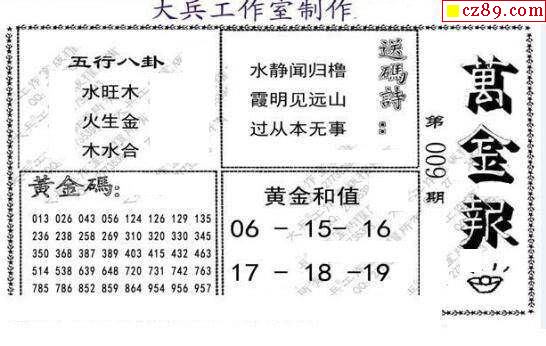 大兵工作室制作
cz89.com
五行八卦
水旺木
火生金
木水合
送碼詩：
水静闻归橹
霞明见远山
过从本无事
萬金報
第009期
黃金碼：
013 026 043 056 124 126 129 135
236 238 258 269 310 320 330 345
350 368 387 389 403 415 432 463
514 538 639 648 720 731 742 763
785 786 852 859 864 956 956 957
黄金和值
06 - 15- 16
17 - 18 -19